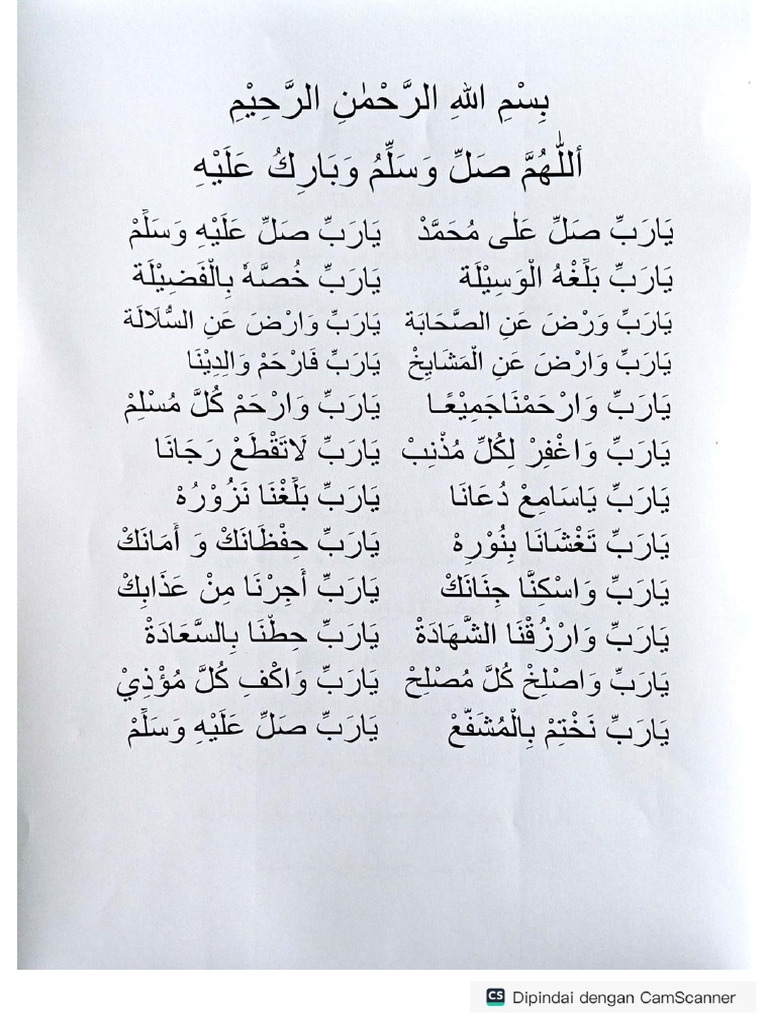 بِسْمِ اللهِ الرَّحْمٰنِ الرَّحِيْمِ
أللّٰهُمَّ صَلِّ وَسَلِّمُ وَبَارِكُ عَلَيْهِ
يَارَبِّ صَلِّ عَلٰى مُحَمَّدْ يَارَبِّ صَلِّ عَلَيْهِ وَسَلِّمْ
يَارَبِّ بَلِّغْهُ الْوَسِيْلَة يَارَبِّ خُصَّهٗ بِالْفَضِيْلَة
يَارَبِّ وَرْضَ عَنِ الصَّحَابَة يَارَبِّ وَارْضَ عَنِ السُّلَالَة
يَارَبِّ وَارْضَ عَنِ الْمَشَايِخْ يَارَبِّ فَارْحَمْ وَالِدِيْنَا
يَارَبِّ وَارْحَمْنَاجَمِيْعًا يَارَبِّ وَارْحَمْ كُلَّ مُسْلِمْ
يَارَبِّ وَاغْفِرْ لِكُلِّ مُذْنِبْ يَارَبِّ لَاتَقْطَعْ رَجَانَا
يَارَبِّ يَاسَامِعْ دُعَانَا يَارَبِّ بَلِّغْنَا نَزُوْرُهْ
يَارَبِّ تَغْشَانَا بِنُوْرِهْ يَارَبِّ حِفْظَانَكْ وَ أَمَانَكْ
يَارَبِّ وَاسْكِنَّا جِنَانَكْ يَارَبِّ أَجِرْنَا مِنْ عَذَابِكْ
يَارَبِّ وَارْزُقْنَا الشَّهَادَةْ يَارَبِّ حِطْنَا بِالسَّعَادَةْ
يَارَبِّ وَاصْلِخْ كُلَّ مُصْلِحْ يَارَبِّ وَاكْفِ كُلَّ مُؤْذِيْ
يَارَبِّ نَخْتِمْ بِالْمُشَفَّعْ يَارَبِّ صَلِّ عَلَيْهِ وَسَلِّمْ
CS Dipindai dengan CamScanner